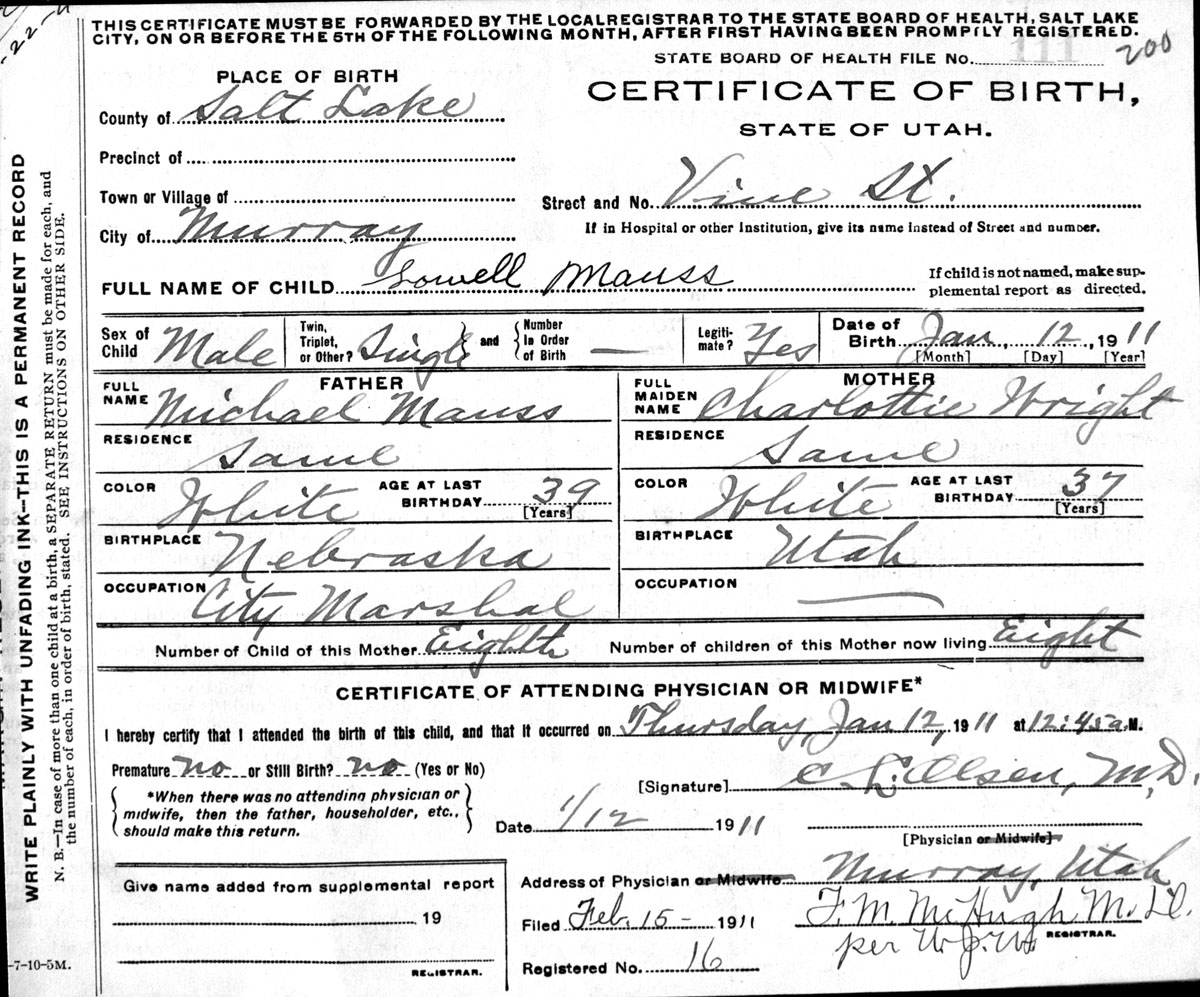 -22-
THIS CERTIFICATE MUST BE FORWARDED BY THE LOCAL REGISTRAR TO THE STATE BOARD OF HEALTH, SALT LAKE
CITY, ON OR BEFORE THE 5TH OF THE FOLLOWING MONTH, AFTER FIRST HAVING BEEN PROMPTLY REGISTERED.
STATE BOARD OF HEALTH FILE No. 111 200
CERTIFICATE OF BIRTH,
STATE OF UTAH.
PLACE OF BIRTH
County of Salt Lake
Precinct of
Town or Village of
City of Murray
Street and No. Vine St.
If in Hospital or other Institution, give its name instead of Street and number.
FULL NAME OF CHILD Lowell Mauss
If child is not named, make sup-
plemental report as directed.
Sex of Child Male
Twin, Triplet, or Other? Single and Number In Order of Birth —
Legiti-mate? Yes
Date of Birth Jan. 12, 1911
[Month] [Day] [Year]
FATHER
FULL NAME Michael Mauss
RESIDENCE Same
COLOR White AGE AT LAST BIRTHDAY 39 [Years]
BIRTHPLACE Nebraska
OCCUPATION City Marshal
MOTHER
FULL MAIDEN NAME Charlottie Wright
RESIDENCE Same
COLOR White AGE AT LAST BIRTHDAY 37 [Years]
BIRTHPLACE Utah
OCCUPATION —
Number of Child of this Mother Eighth Number of children of this Mother now living Eight
CERTIFICATE OF ATTENDING PHYSICIAN OR MIDWIFE*
I hereby certify that I attended the birth of this child, and that it occurred on Thursday, Jan 12, 1911 at 12:45 a.M.
Premature no or Still Birth? no (Yes or No)
*When there was no attending physician or
midwife, then the father, householder, etc.,
should make this return.
[Signature] C L. Olsen, M.D.
Date 1/12 1911
[Physician or Midwife]
Address of Physician or Midwife Murray, Utah
Filed Feb. 15- 1911 F. M. McHugh M.D.
per W. J. REGISTRAR.
Registered No. 16
Give name added from supplemental report
19
REGISTRAR.
-7-10-5M.
WRITE PLAINLY WITH UNFADING INK—THIS IS A PERMANENT RECORD
N. B.—In case of more than one child at a birth, a SEPARATE RETURN must be made for each, and
the number of each, in order of birth, stated. SEE INSTRUCTIONS ON OTHER SIDE.